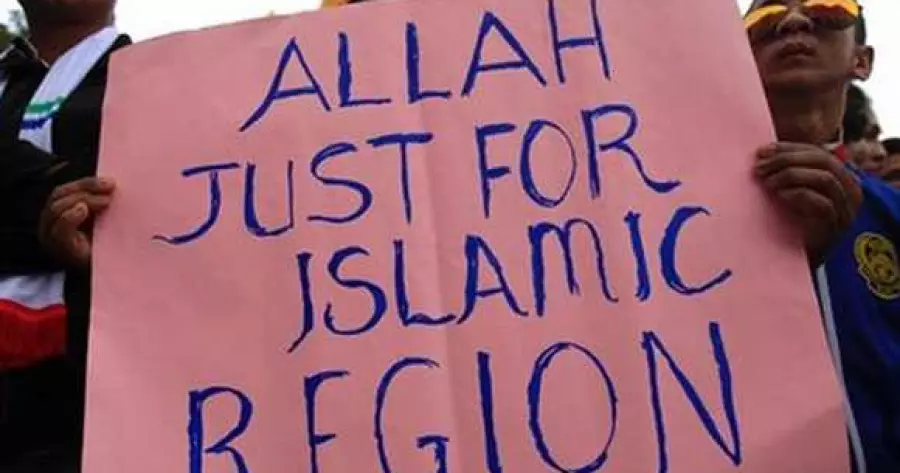 ALLAH
JUST FOR
ISLAMIC
REGION